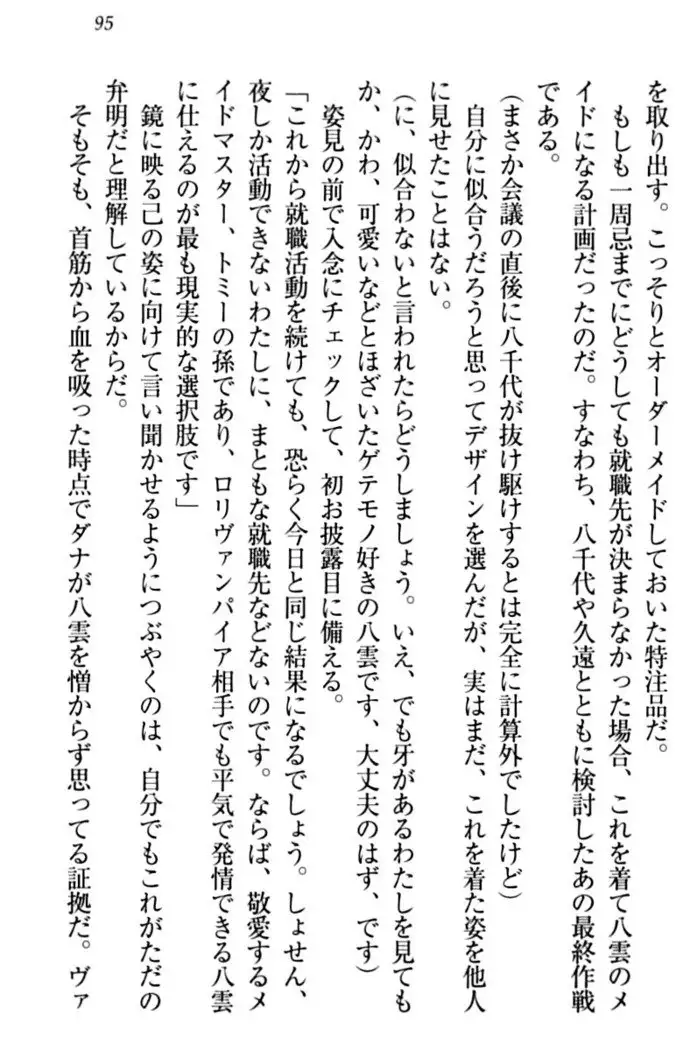 95
を取り出す。こっそりとオーダーメイドしておいた特注品だ。
もしも一周忌までにどうしても就職先が決まらなかった場合、これを着て八雲のメ
イドになる計画だったのだ。すなわち、八千代や久遠とともに検討したあの最終作戦
である。
(まさか会議の直後に八千代が抜け駆けするとは完全に計算外でしたけど)
自分に似合うだろうと思ってデザインを選んだが、実はまだ、これを着た姿を他人
に見せたことはない。
(に、似合わないと言われたらどうしましょう。いえ、でも牙があるわたしを見ても
か、かわ、可愛いなどとほざいたゲテモノ好きの八雲です、大丈夫のはず、です)
姿見の前で入念にチェックして、初お披露目に備える。
「これから就職活動を続けても、恐らく今日と同じ結果になるでしょう。しょせん、
夜しか活動できないわたしに、まともな就職先などないのです。ならば、敬愛するメ
イドマスター、トミーの孫であり、ロリヴァンパイア相手でも平気で発情できる八雲
に仕えるのが最も現実的な選択肢です」
鏡に映る己の姿に向けて言い聞かせるようにつぶやくのは、自分でもこれがただの
弁明だと理解しているからだ。
そもそも、首筋から血を吸った時点でダナが八雲を憎からず思ってる証拠だ。ヴァ